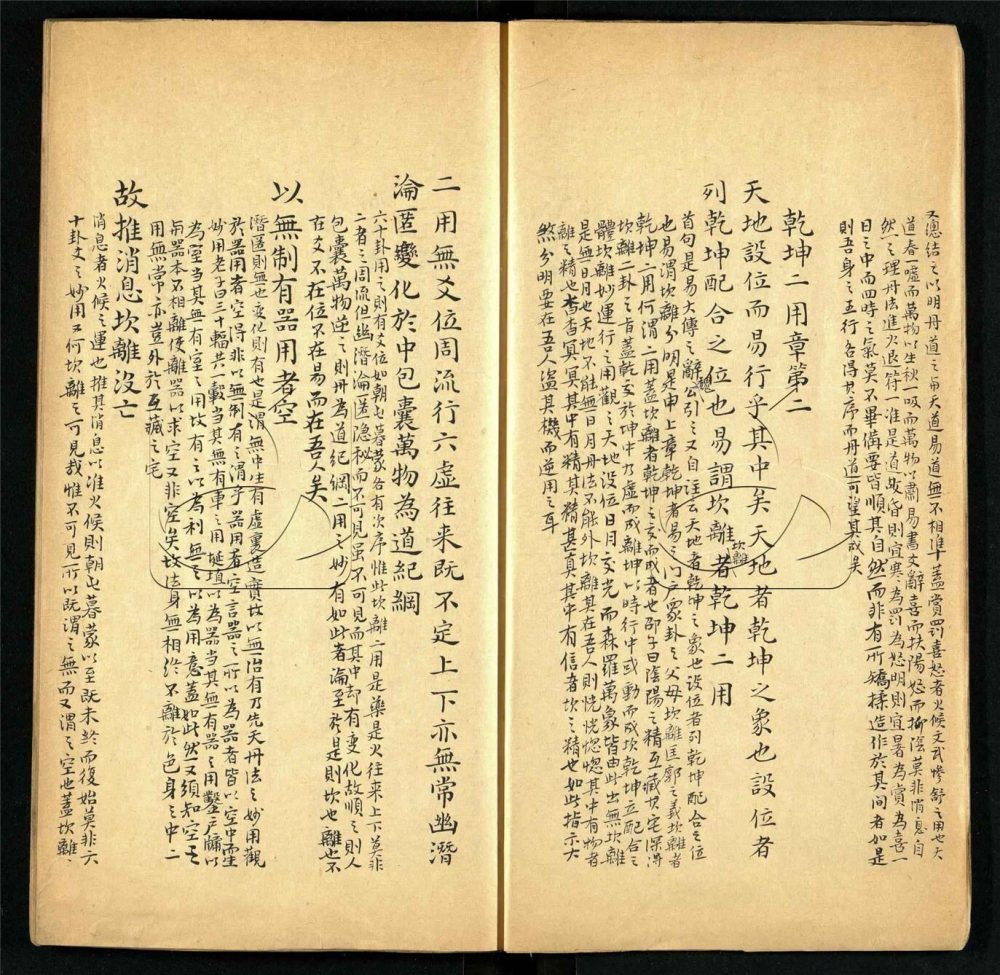 又總結之以明丹道之與天道易道無不相準蓋賞罰喜怒者火候文武慘舒之用也天
道春噓而萬物以生秋一吸而萬物以肅易書文辭喜而扶陽怒而抑陰莫非消息自
然之理丹法進火退符一准是道故昏則宜寒為罰為怒明則宜暑為賞為喜一
日之中而四時之氣莫不畢備要皆順其自然而非有所矯揉造作於其間者如是
則吾身之五行各得其序而丹道可望其成矣
乾坤二用章第二
天地設位而易行乎其中矣天地者乾坤之象也設位者
列乾坤配合之位也易謂坎離者乾坤二用
離坎離
首句是易大傳之辭魏公引之又自注云天地者乾坤之象也設位者列乾坤配合之位
也易謂坎離分明是申上章乾坤者易之門戶眾卦之父母坎離匡郭之義坎離者
乾坤二用何謂二用蓋坎離者乾坤之交而成者也邵子曰陰陽之精互藏其宅深得
坎離二卦之旨蓋乾交於坤中乃虛而成離坤以時行中或動而成坎乾坤立配合之
體坎離妙運行之用觀之天地設位日月交光而森羅萬象皆由此出無坎離
是無日月也天地不能無日月丹法不能外坎離其在吾人則恍恍惚惚其中有物者
離之精也杳杳冥冥其中有精其精甚真其中有信者坎之精也如此指示大
煞分明要在吾人盜其機而逆用之耳
二用無爻位周流行六虛往來既不定上下亦無常幽潛
淪匿變化於中包囊萬物為道紀綱
六十卦用之則有爻位如朝屯暮蒙各有次序惟此坎離二用是藥是火往來上下莫非
二者之周流但幽潛淪匿隱秘而不可見雖不可見而其中卻有變化故順之則人
包囊萬物逆之則丹為道紀綱二用之妙有如此者淪至於是則坎也離也不
在爻不在位不在易而在吾人矣
以無制有器用者空
潛匿則無也變化則有也是謂無中生有虛裏造實故以無治有乃先天丹法之妙用觀
於器用者空得非以無制有之謂乎器用者空言器之所以為器者皆以空中而生
妙用老子曰三十輻共一轂當其無有車之用埏埴以為器當其無有器之用鑿戶牖以
為室當其無有室之用故有之以為利無之以為用意蓋如此然又須知空之
與器本不相離使離器以求空又非空矣故法身無相終不離於色身之中二
用無常亦豈外於互藏之宅
故推消息坎離沒亡
消息者火候之運也推其消息以准火候則朝屯暮蒙以至既未終而復始莫非六
十卦爻之妙用又何坎離之可見哉惟不可見所以既謂之無而又謂之空也蓋坎離